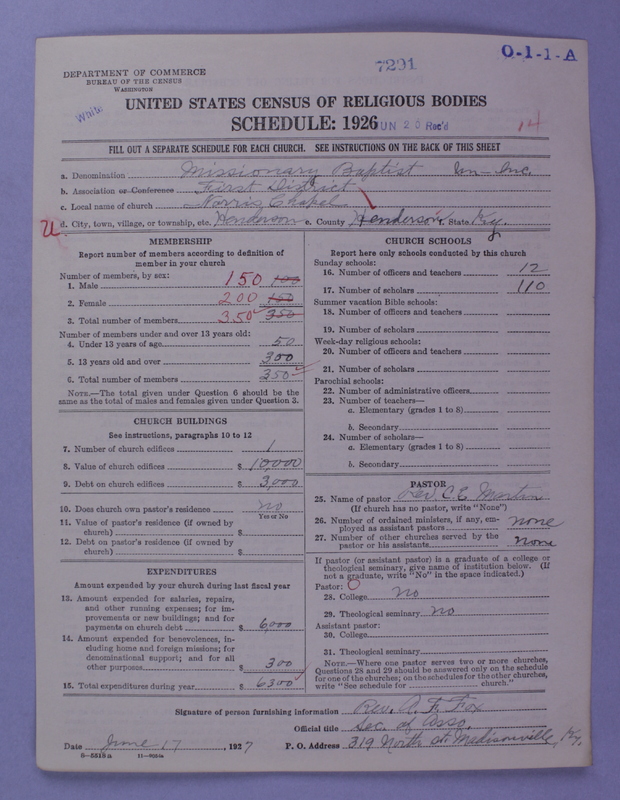 7291
O-1-1-A
DEPARTMENT OF COMMERCE
BUREAU OF THE CENSUS
WASHINGTON
White
UNITED STATES CENSUS OF RELIGIOUS BODIES
SCHEDULE: 1926
JUN 20 Rec'd
14
FILL OUT A SEPARATE SCHEDULE FOR EACH CHURCH. SEE INSTRUCTIONS ON THE BACK OF THIS SHEET
a. Denomination Missionary Baptist Un-Inc.
b. Association or Conference First District
c. Local name of church Norris Chapel
d. City, town, village, or township, etc. Henderson e. County Henderson f. State Ky.
MEMBERSHIP
Report number of members according to definition of
member in your church
Number of members, by sex:
1. Male 150
2. Female 200 150
3. Total number of members 350 350
Number of members under and over 13 years old:
4. Under 13 years of age 50
5. 13 years old and over 300
6. Total number of members 350
NOTE.—The total given under Question 6 should be the
same as the total of males and females given under Question 3.
CHURCH BUILDINGS
See instructions, paragraphs 10 to 12
7. Number of church edifices 1
8. Value of church edifices $ 10,000
9. Debt on church edifices $ 3,000
10. Does church own pastor's residence? no
Yes or No
11. Value of pastor's residence (if owned by
church) $
12. Debt on pastor's residence (if owned by
church) $
EXPENDITURES
Amount expended by your church during last fiscal year
13. Amount expended for salaries, repairs,
and other running expenses; for im-
provements or new buildings; and for
payments on church debt $ 6,000
14. Amount expended for benevolences, in-
cluding home and foreign missions; for
denominational support; and for all
other purposes $ 300
15. Total expenditures during year $ 6300
CHURCH SCHOOLS
Report here only schools conducted by this church
Sunday schools:
16. Number of officers and teachers 12
17. Number of scholars 110
Summer vacation Bible schools:
18. Number of officers and teachers
19. Number of scholars
Week-day religious schools:
20. Number of officers and teachers
21. Number of scholars
Parochial schools:
22. Number of administrative officers
23. Number of teachers—
a. Elementary (grades 1 to 8)
b. Secondary
24. Number of scholars—
a. Elementary (grades 1 to 8)
b. Secondary
PASTOR
25. Name of pastor Rev. C. E. Martin
(If church has no pastor, write "None")
26. Number of ordained ministers, if any, em-
ployed as assistant pastors none
27. Number of other churches served by the
pastor or his assistants none
If pastor (or assistant pastor) is a graduate of a college or
theological seminary, give name of institution below. (If
not a graduate, write "No" in the space indicated.)
Pastor: 0
28. College no
29. Theological seminary no
Assistant pastor:
30. College
31. Theological seminary
NOTE.—Where one pastor serves two or more churches,
Questions 28 and 29 should be answered only on the schedule
for one of the churches; on the schedules for the other churches,
write "See schedule for church."
Signature of person furnishing information Rev. A. F. Fox
Official title Sec. of Asso.
Date June 17, 1927 P. O. Address 319 North St. Madisonville, Ky.